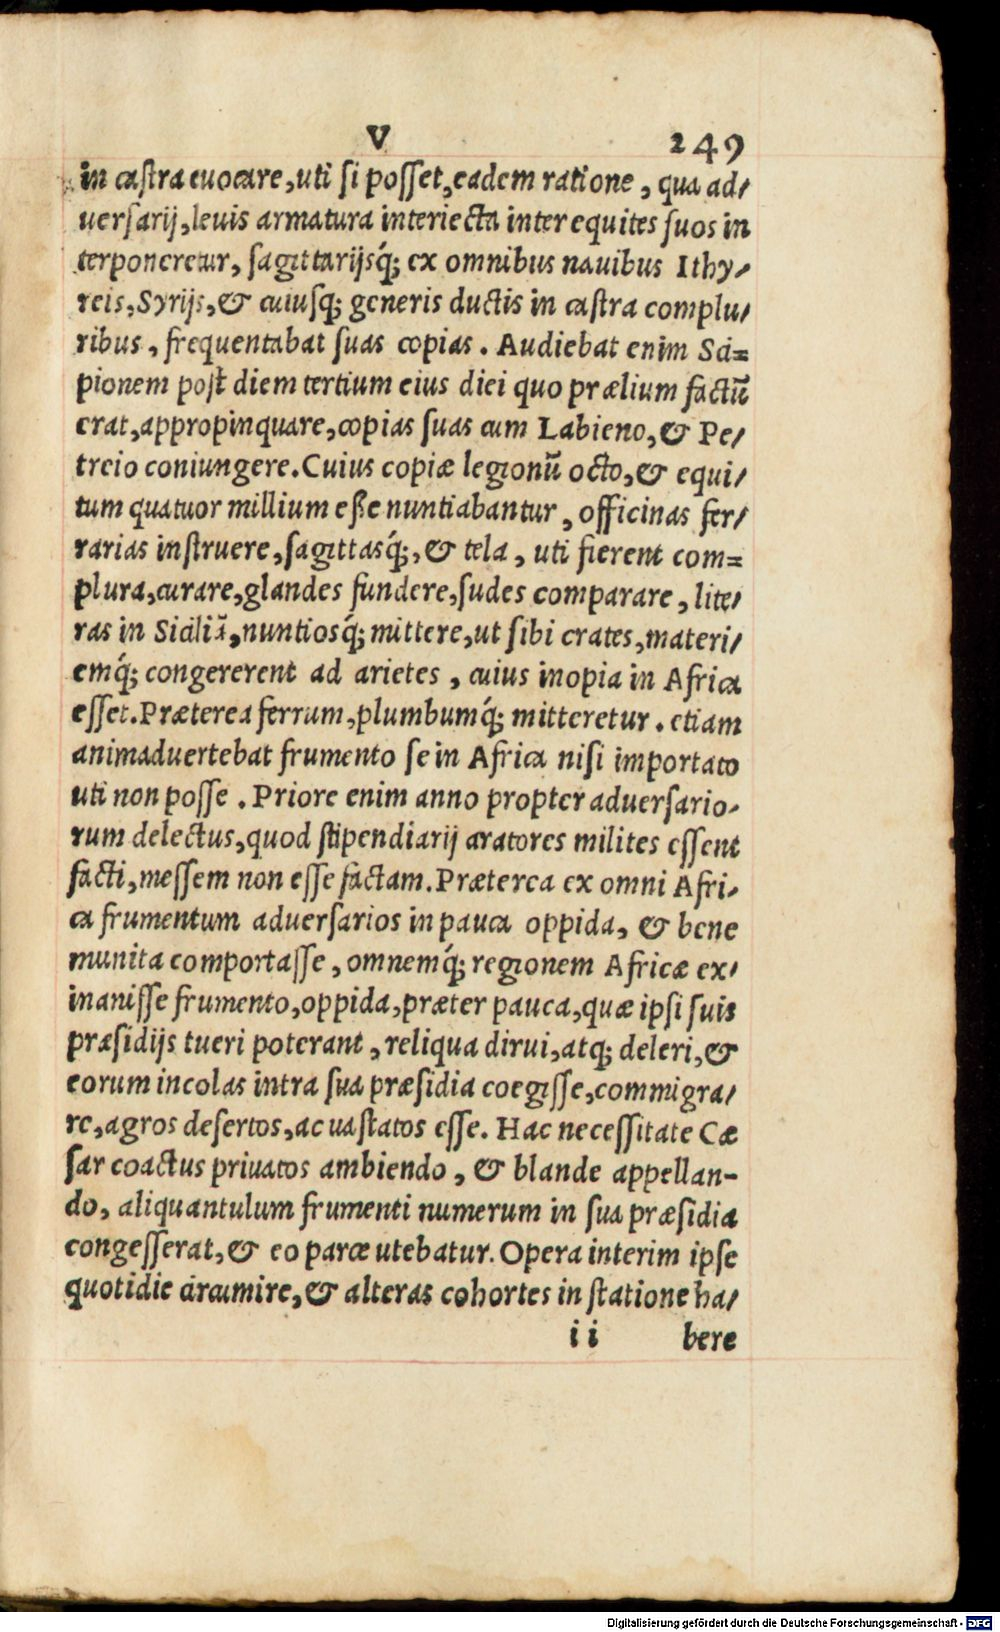 V 249
in castra euocare, uti si posset, eadem ratione, qua ad/
uersarij, leuis armatura interiecta inter equites suos in
terponeretur, sagittarijsq́; ex omnibus nauibus Ithy/
reis, Syrijs, & cuiusq; generis ductis in castra complu/
ribus, frequentabat suas copias. Audiebat enim Sci=
pionem post diem tertium eius diei quo prælium factū
erat, appropinquare, copias suas cum Labieno, & Pe/
treio coniungere. Cuius copiæ legionū octo, & equi/
tum quatuor millium eße nuntiabantur, officinas fer/
rarias instruere, sagittasq́;, & tela, uti fierent com=
plura, curare, glandes fundere, sudes comparare, lite/
ras in Siciliā, nuntiosq́; mittere, ut sibi crates, materi/
emq́; congererent ad arietes, cuius inopia in Africa
esset. Præterea ferrum, plumbumq́; mitteretur. etiam
animaduertebat frumento se in Africa nisi importato
uti non posse. Priore enim anno propter aduersario-
rum delectus, quod stipendiarij aratores milites essent
facti, messem non esse factam. Præterea ex omni Afri-
ca frumentum aduersarios in pauca oppida, & bene
munita comportasse, omnemq́; regionem Africæ ex/
inanisse frumento, oppida, præter pauca, quæ ipsi suis
præsidijs tueri poterant, reliqua dirui, atq; deleri, &
eorum incolas intra sua præsidia coegisse, commigra/
re, agros desertos, ac uastatos esse. Hac necessitate Cæ
sar coactus priuatos ambiendo, & blande appellan-
do, aliquantulum frumenti numerum in sua præsidia
congesserat, & eo parce utebatur. Opera interim ipse
quotidie circumire, & alteras cohortes in statione ha/
ii bere
Digitalisierung gefördert durch die Deutsche Forschungsgemeinschaft - DFG